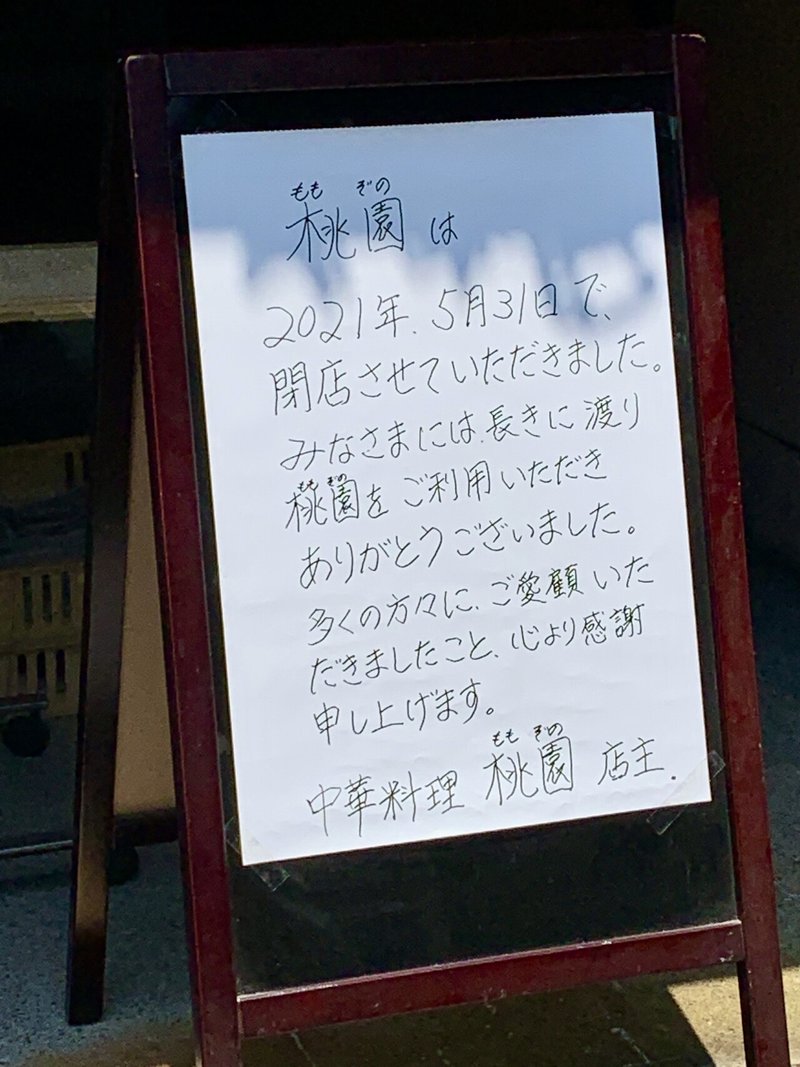 ももぞの
桃園は
2021年、5月31日で、
閉店させていただきました。
みなさまには、長きに渡り
ももぞの
桃園をご利用いただき
ありがとうございました。
多くの方々に、ご愛顧いた
だきましたこと、心より感謝
申し上げます。
ももぞの
中華料理 桃園 店主.